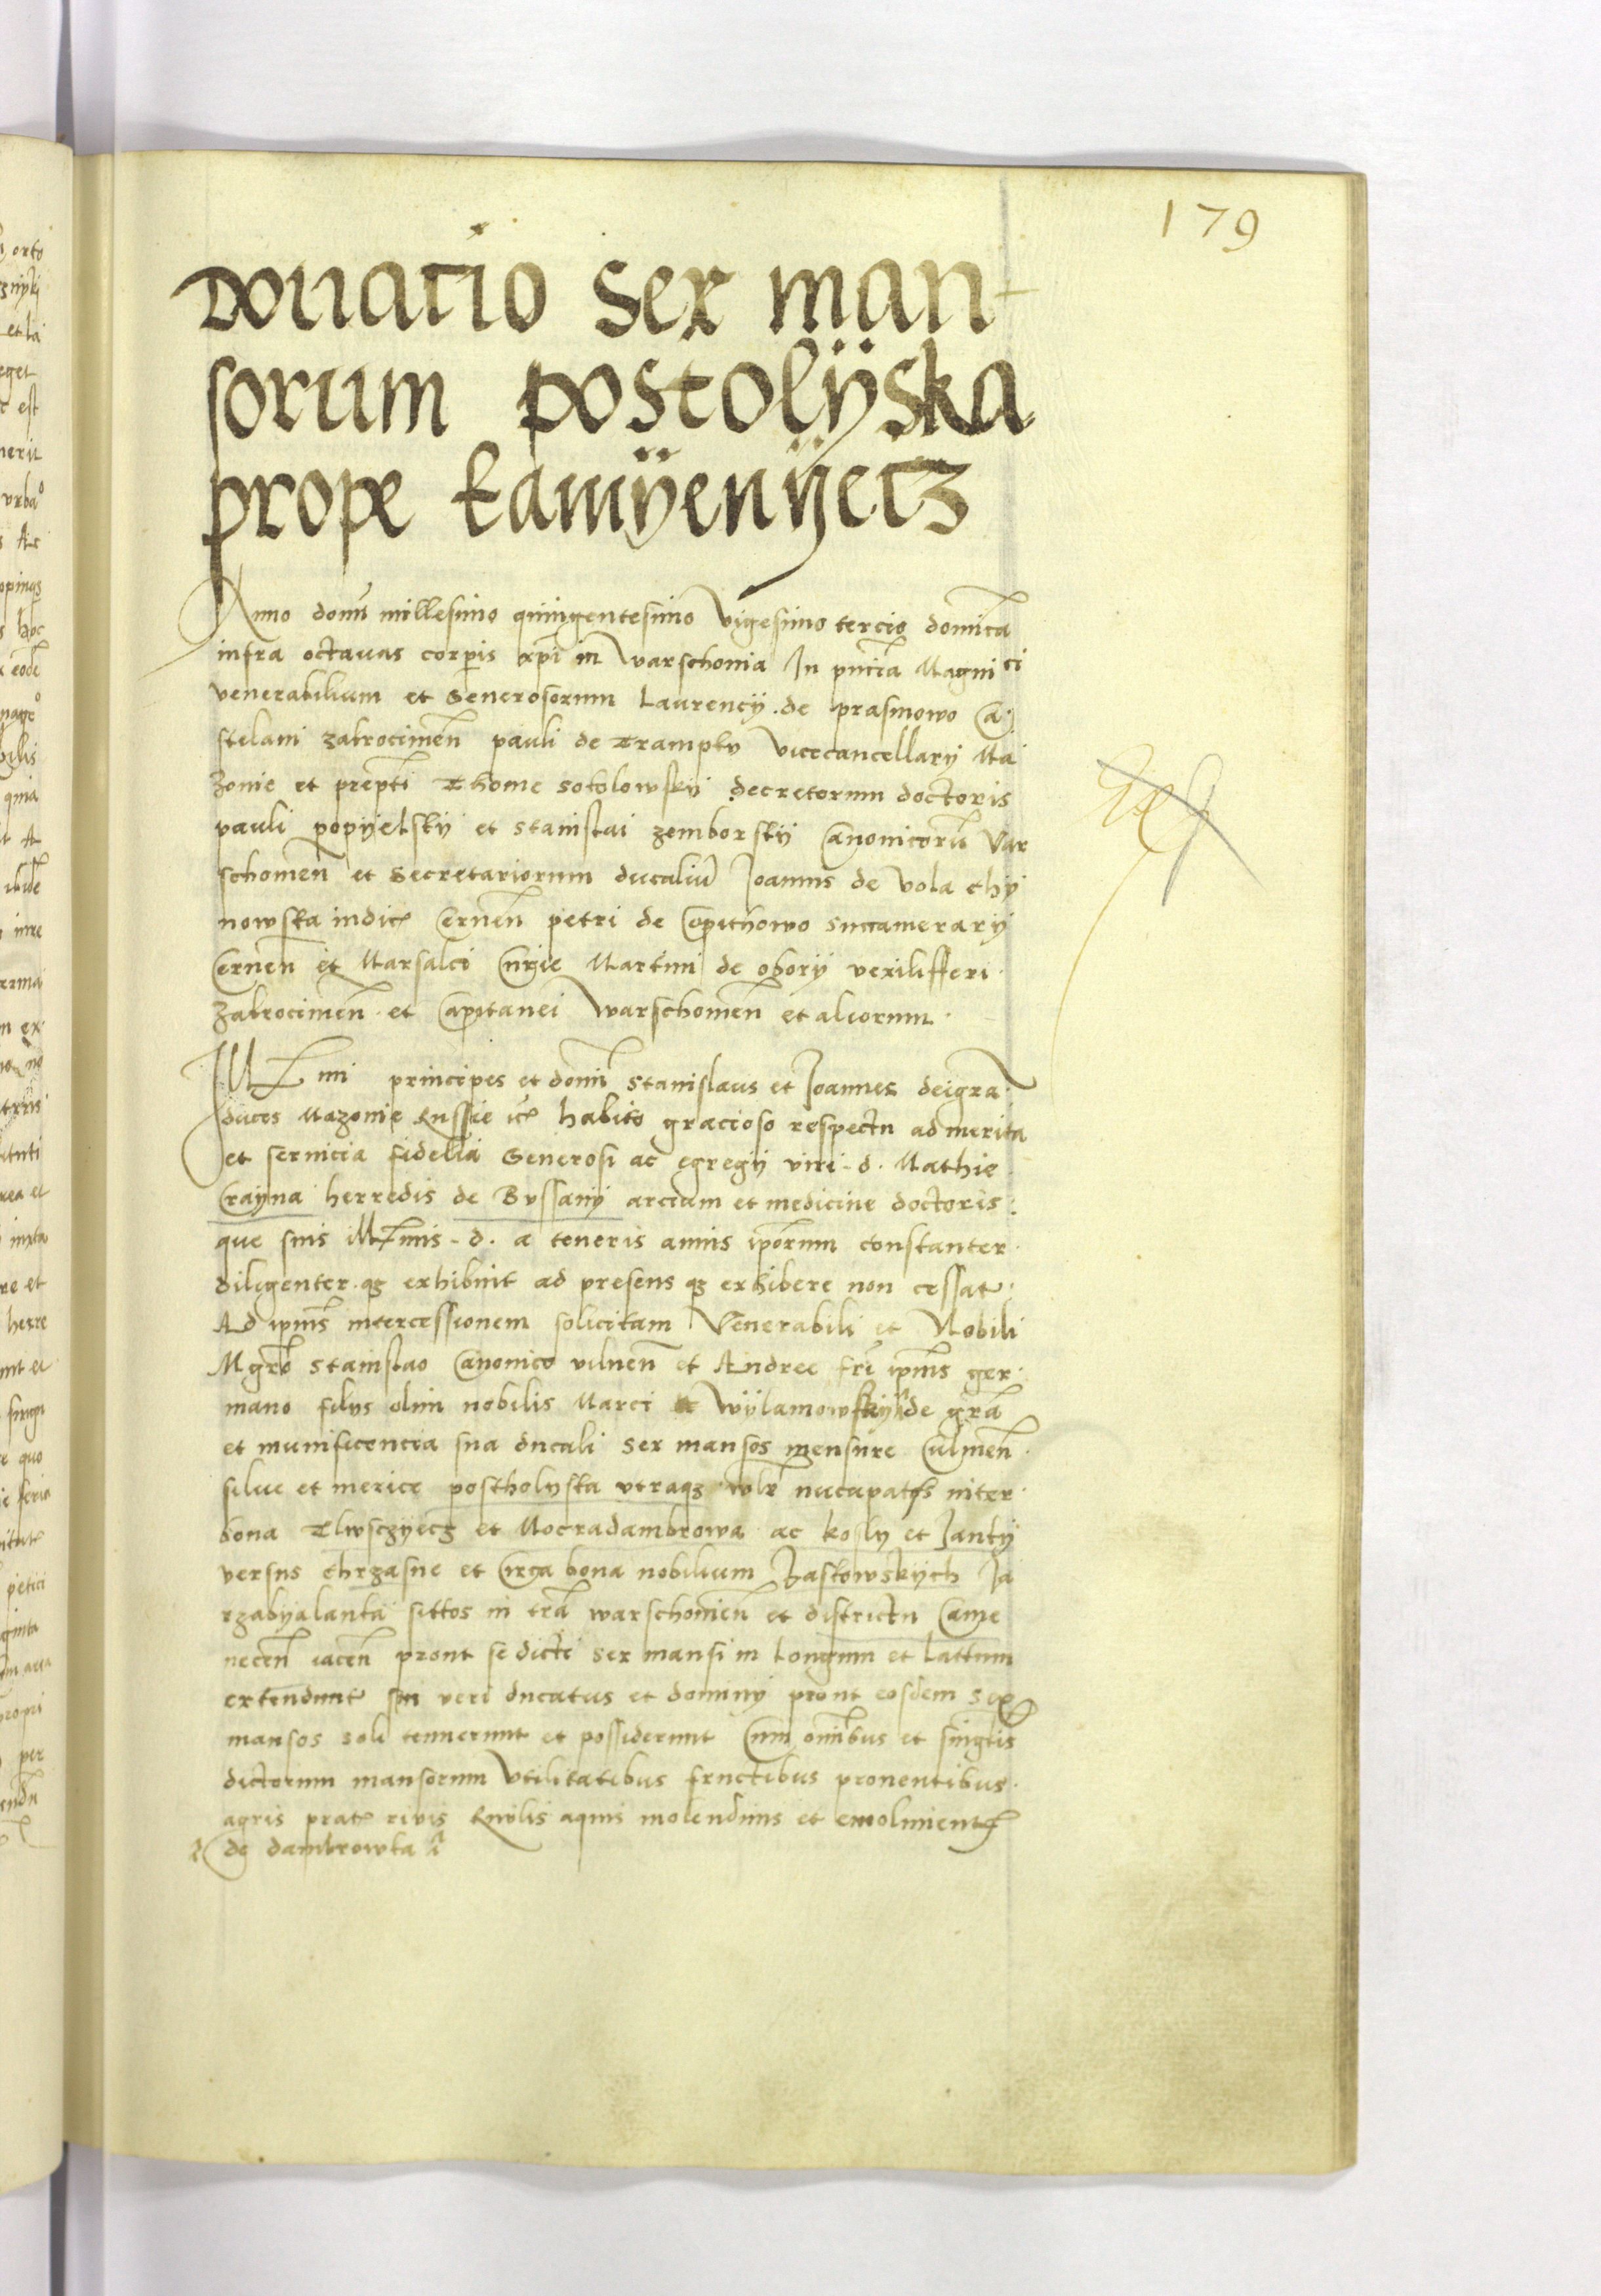 179
Donatio sex man
sorum postolÿska
prope kamÿenÿetz
Anno domī millesimo quingentesimo Vigesimo tercio dominica
infra octauas corporis xpi in Warschouia In pñcia Magnici
venerabilium et Generosorum Laurencij de prasmowo Ca
stelani zakrocimeñ pauli de Trampky vicecancellarij Ma
zouie et prepti Thome sokolowskÿ decretorum doctoris
pauli popÿelskÿ et stanislai zemborskÿ Canonicorū War
schouieñ et Secretariorum ducaliū Joannis de Vola chÿ
nowska iudicis Cerneñ petri de Copithowo succamerarÿ
Cerneñ et Marsalci Curie Martini de oborÿ vexilifferi
zakrocimeñ et Capitanei Warschouieñ et aliorum
Illmi principes et domī Stanislaus et Joannes dei gra
duces Mazouie Russie ꝛc habito gracioso respectu ad merita
et seruicia fidelia Generosi ac egregÿ viri d. Mathie
Crayna herredis de Bussanÿ arcium et medicine doctoris
que suis Illmis d. a teneris annis ipsorum constanter
diligenter q3 exhibuit ad presens q3 exhibere non cessat
Ad ipius intercessionem solicitam Venerabili et Nobili
Mgro Stanislao Canonico vilneñ et Andree fri ipius ger
mano filÿs olim nobilis Marci Wÿlamowskÿ de gra
et munificencia sua ducali sex mansos mensure Culmeñ
silue et merice postholyska vtraq3 wlr nucupatos inter
bona Tlwsczyecz et Mocradambrowa ac kosly et Jankÿ
versus chrzasne et Circa bona nobilium Jastowskÿch Ja
rzabyalanka sittos in tra warschouieñ et districtu Came
neceñ iaceñ prout se dicti sex mansi in Longum et Lattum
extendunt sui veri ducatus et dominÿ prout eosdem sex
mansos soli tenuerunt et possiderunt Cum omibus et singlis
dictorum mansorum Vtilitatibus fructibus prouentibus
agris pratis riuis Riwlis aquis molendinis et emolimentis
de dambrowka